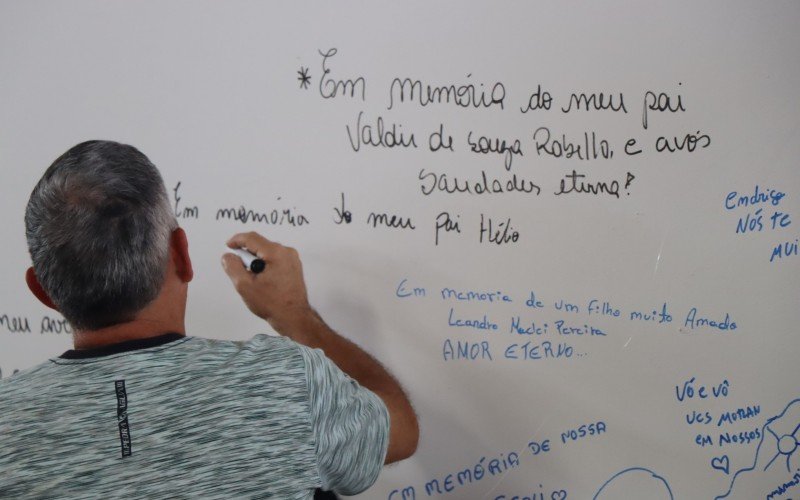 *Em memória do meu pai
Valdir de Souza Robello, e avós
Saudades eterna!
Em memória do meu pai Hélio
meu avô
Endrigo
Nós te
mui
Em memoria de um filho muito Amado
Leandro Maclei Pereira
AMOR ETERNO...
VÓ e VÔ
VCS MORAM
EM NOSSOS
EM MEMÓRIA DE NOSSA